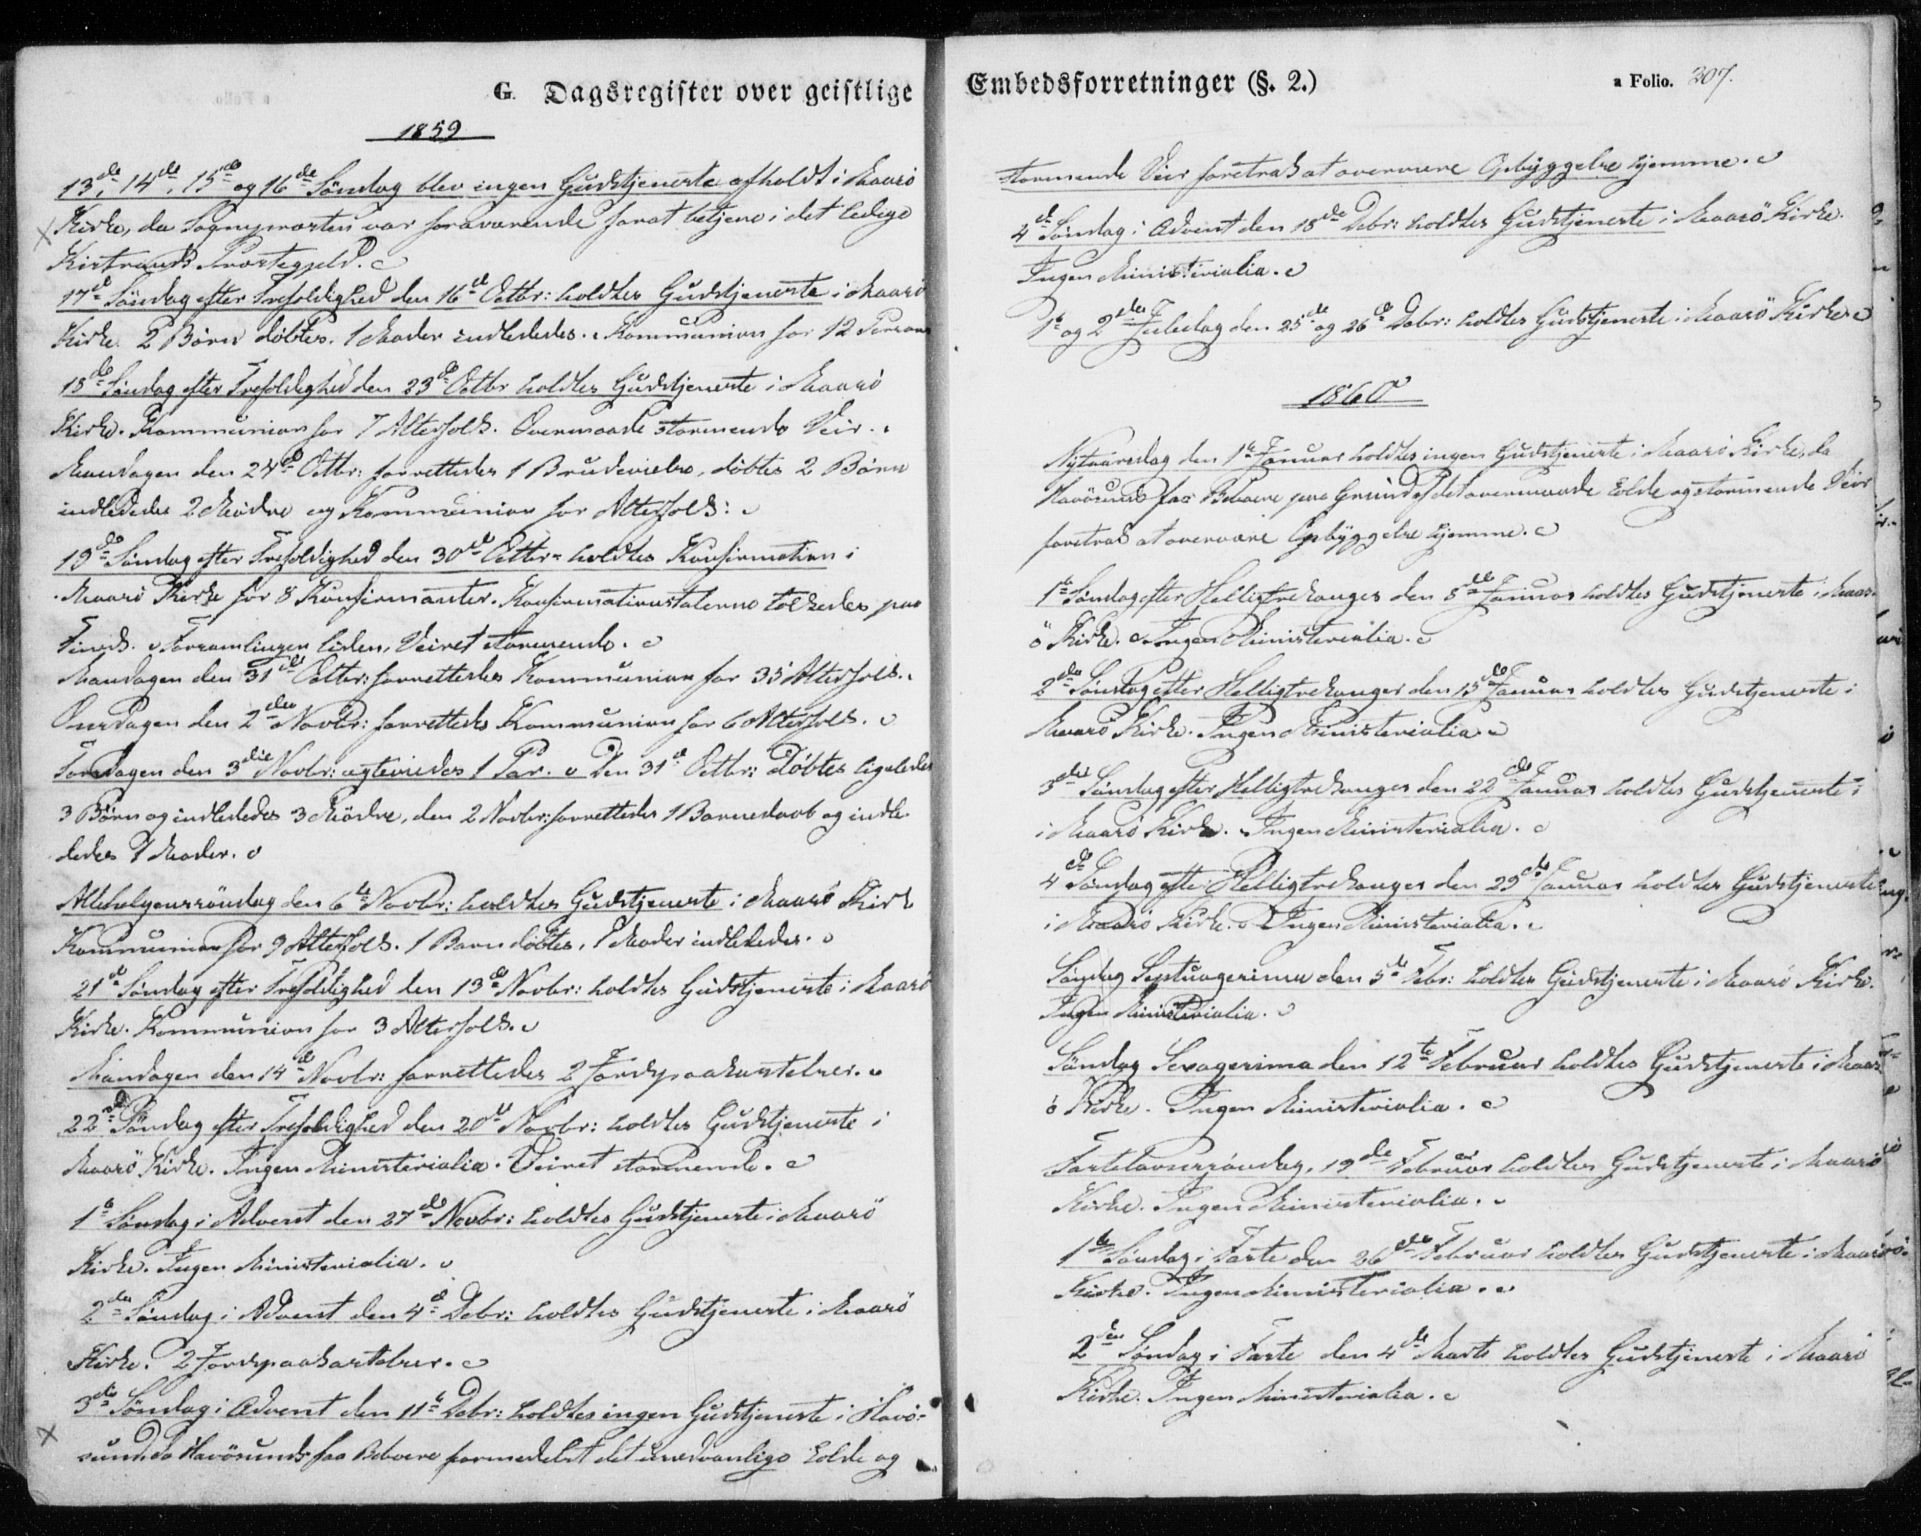 G. Dagsregister over geistlige Embedsforretninger (§. 2.) a Folio. 207.
1859
13de, 14de, 15de og 16de Søndag blev ingen Gudstjeneste afholdt i Maasö
Kirke, da Sognepresten var fraværende for at betjene i det ledige
Kistrands Prestegjeld.
17de Søndag efter Trefoldighed den 16de Octbr: holdtes Gudstjeneste i Maasö
Kirke. 2 Börn döbtes. 1 Moder indlededes. Kommunion for 12 Person
18de Søndag efter Trefoldighed den 23de Octbr holdtes Gudstjeneste i Maasö
Kirke. Kommunion for 7 Altersfolk. Overmaade stormende Veir.
Mandagen den 24de Octbr: forrettedes 1 Brudevielse, döbtes 2 Börn
indlededes 2 Mödre og Kommunion for Altersfolk:
19de Søndag efter Trefoldighed den 30de Octbr: holdtes Konfirmation i
Maasö Kirke for 8 Konfirmanter. Konfirmationstalerne tolkedes paa
Finsk. Forsamlingen liden, Veiret stormende.
Mandagen den 31de Octbr: forrettedes Kommunion for 35 Altersfolk.
Onsdagen den 2den Novbr: forrettedes Kommunion for 6 Altersfolk.
Torsdagen den 3die Novbr: egteviedes 1 Par. Den 31de Octbr: döbtes ligeledes
3 Börn og indlededes 3 Mödre, den 2 Novbr: forrettedes 1 Barnedaab og indle
dedes 1 Moder.
Allehelgenssöndag den 6te Novbr: holdtes Gudstjeneste i Maasö Kirk
Kommunion for 9 Altersfolk. 1 Barn döbtes, 1 Moder indlededes.
21de Søndag efter Trefoldighed den 13de Novbr: holdtes Gudstjeneste i Maasö
Kirke. Kommunion for 3 Altersfolk.
Mandagen den 14de Novbr: forrettedes 2 Jordspaakastelser.
22de Söndag efter Trefoldighed den 20de Novbr: holdtes Gudstjeneste i
Maasö Kirke. Ingen Ministerialia. Veiret stormende.
1te Søndag i Advent den 27de Novbr: holdtes Gudstjeneste i Maasö
Kirke. Ingen Ministerialia.
2den Søndag i Advent den 4de Debr: holdtes Gudstjeneste i Maasö
Kirke. 2 Jordspaakastelser.
3die Söndag i Advent den 11te Debr: holdtes ingen Gudstjeneste i Havö-
sund da Havösunds faa Beboere formedelst det usedvanlige Kolde og
stormende Veir foretrak at overvære Opbyggelse hjemme.
4de Søndag i Advent den 18de Debr: holdtes Gudstjeneste i Maasö Kirke.
Ingen Ministerialia.
1te og 2den Juledag den 25de og 26de Debr: holdtes Gudstjeneste i Maasö Kirke
1860
Nytaarsdag den 1te Januar holdtes ingen Gudstjeneste i Maasö Kirke, da
Havösunds faa Beboere paa Grund af det overmaade kolde og stormende Veir
foretrak at overvære Opbyggelse hjemme.
1te Søndag efter Helligtrekonger den 8de Januar holdtes Gudstjeneste i Maas-
ö Kirke. Ingen Ministerialia.
2den Søndag efter Helligtrekonger den 15de Januar holdtes Gudstjeneste i
Maasö Kirke. Ingen Ministerialia
3die Søndag efter Helligtrekonger den 22de Januar holdtes Gudstjeneste i
i Maasö Kirke. Ingen Ministerialia.
4de Søndag efter Helligtrekonger den 29de Januar holdtes Gudstjeneste
i Maasö Kirke. Ingen Ministerialia.
Søndag Septuagesima den 5te Febr: holdtes Gudstjeneste i Maasö Kirke.
Ingen Ministerialia.
Søndag Sexagesima den 12te Februar holdtes Gudstjeneste i Maas
ö Kirke. Ingen Ministerialia.
Fastelavnssöndag, 19de Februar holdtes Gudstjeneste i Maasö
Kirke. Ingen Ministerialia.
1te Søndag i Faste den 26de Februar holdtes Gudstjeneste i Maasö
Kirke. Ingen Ministerialia.
2den Søndag i Faste den 4de Marts holdtes Gudstjeneste i Maasö
Kirke. Ingen Ministerialia.